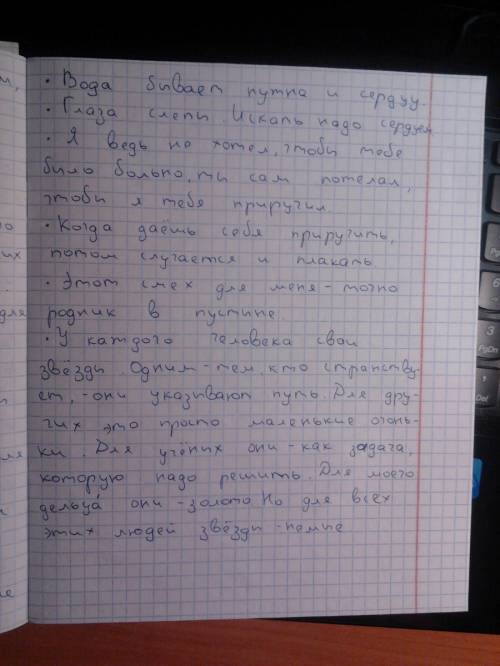 • Вода бывает нутна и сердцу.
• Глаза слепы. Искать надо сердцем
• Я ведь не хотел, чтобы тебе
было больно, ты сам потелал,
чтобы я тебя приручил.
• Когда даёшь себя приручить,
потом случается и плакать
• Этот смех для меня - точно
родник в пустине.
• У каждого человека свои
звёзды. Одним - тем, кто странству-
ет, - они указывают путь. Для дру-
гих это просто маленькие огонь-
ки. Для учёных они - как задача,
которую надо решить. Для моего
дельца они - золото. Но для всех
этих людей звёзды - немые